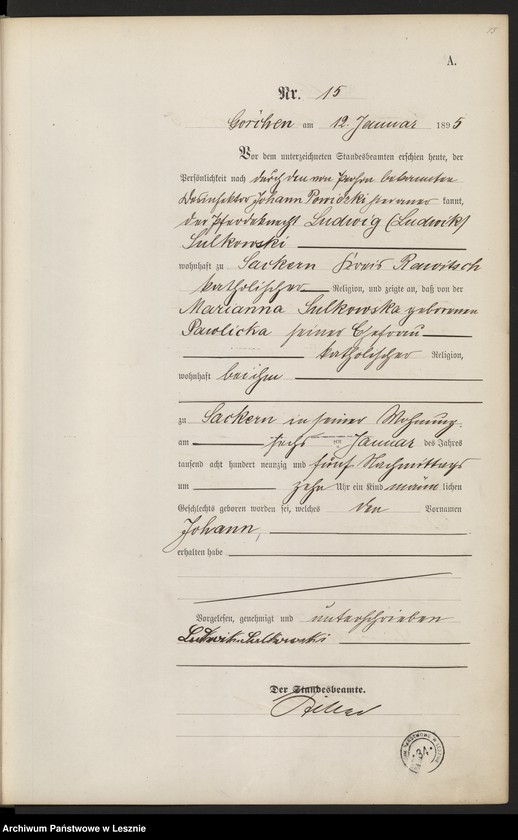 15
A.
Nr. 15
Görchen am 12 Januar 1895
Vor dem unterzeichneten Standesbeamten erschien heute, der
Persönlichkeit nach durch den von Person bekannten
Johann Powidzki kannt,
der Pferdeknecht Ludwig (Ludwik)
Sulkowski
wohnhaft zu Sackern Kreis Rawitsch
katholischer Religion, und zeigte an, daß von der
Marianna Sulkowska geborenen
Pawlicka seiner Ehefrau
katholischer Religion,
wohnhaft bei ihm
zu Sackern in seiner Wohnung
am sechsten Januar des Jahres
tausend acht hundert neunzig und fünf Nachmittags
um zehn Uhr ein Kind männlichen
Geschlechts geboren worden sei, welches den Vornamen
Johann,
erhalten habe
Vorgelesen, genehmigt und unterschrieben
Ludwik Sulkowski
Der Standesbeamte.
Archiwum Państwowe w Lesznie